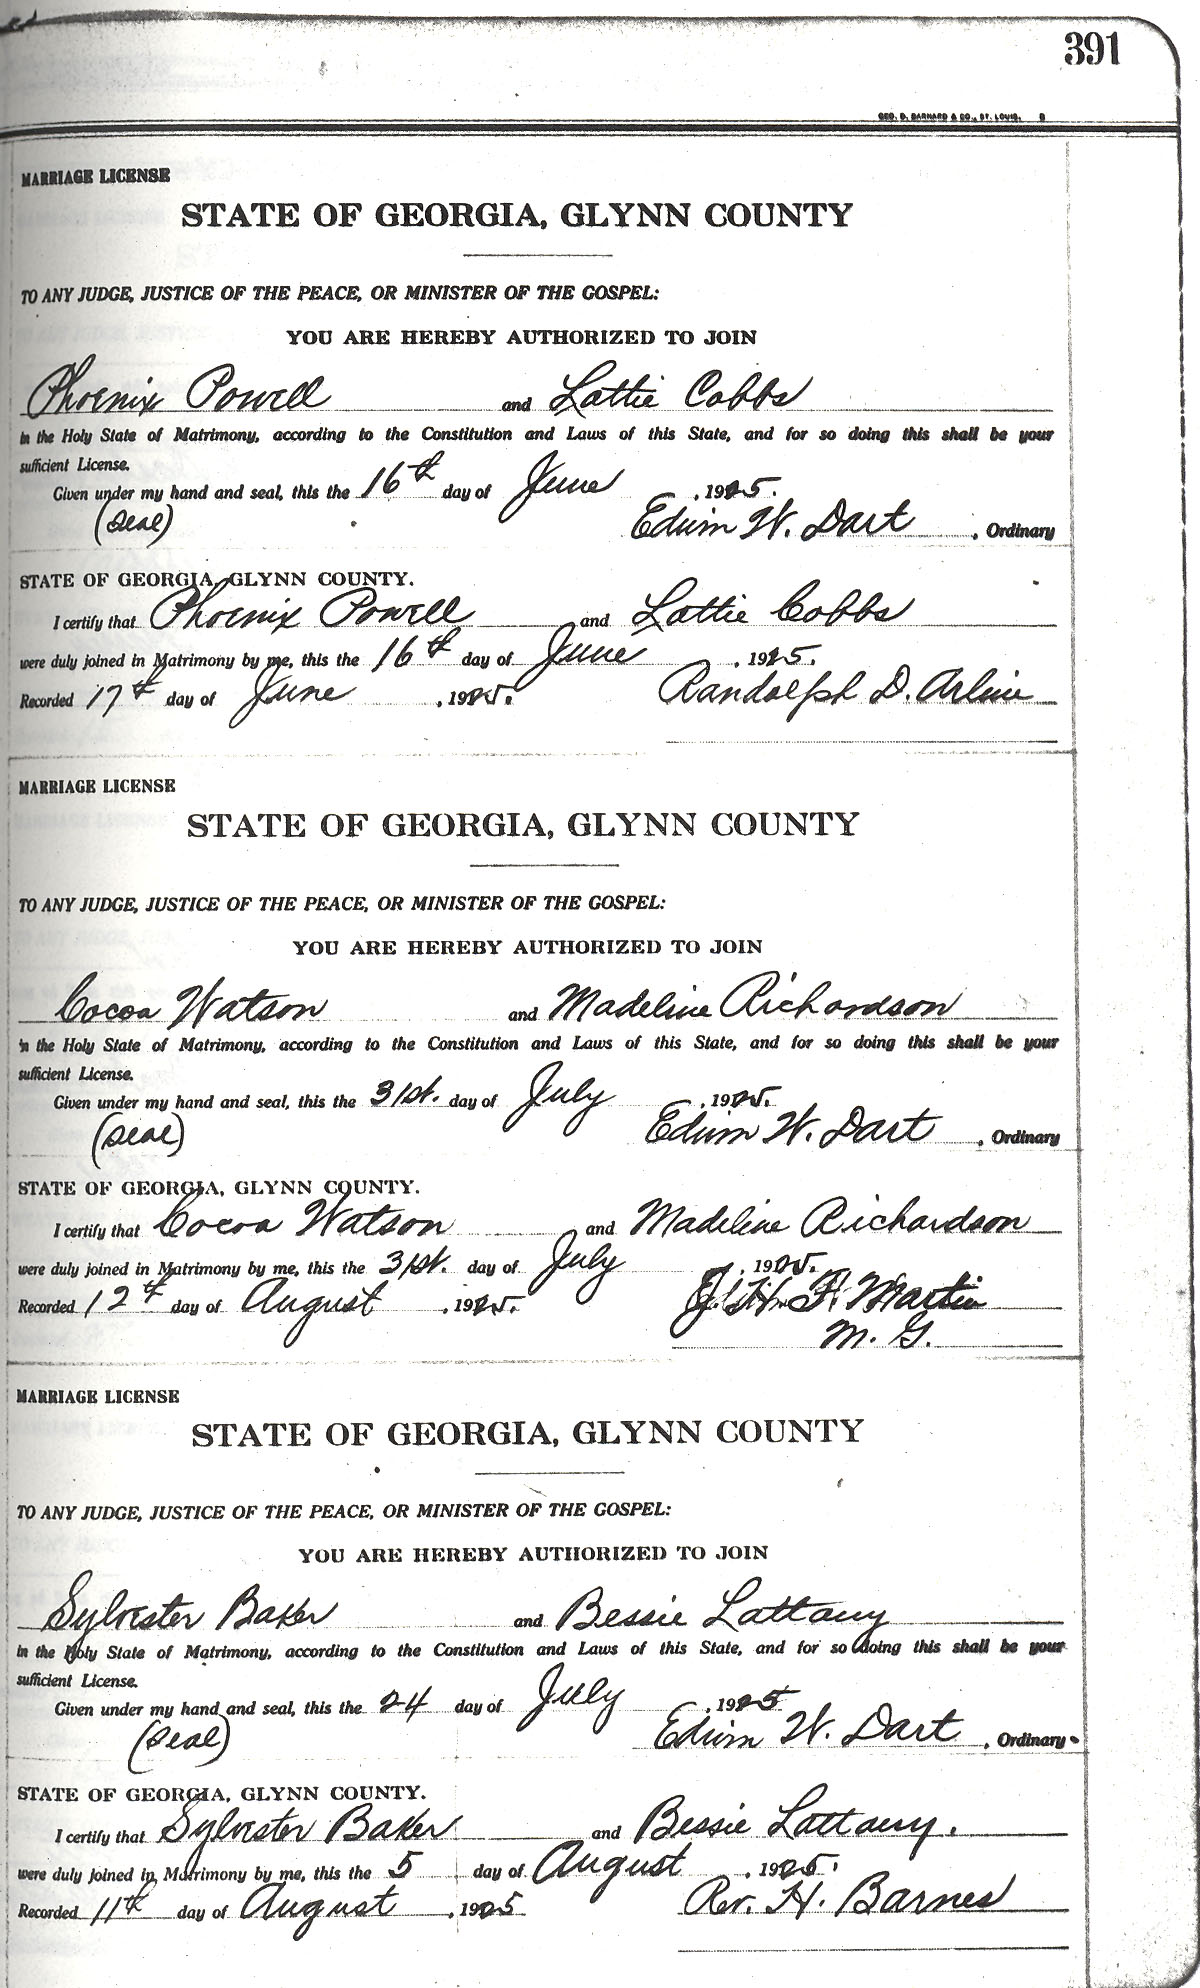 391
GEO. D. BARNARD & CO., ST. LOUIS. B
MARRIAGE LICENSE
STATE OF GEORGIA, GLYNN COUNTY
TO ANY JUDGE, JUSTICE OF THE PEACE, OR MINISTER OF THE GOSPEL:
YOU ARE HEREBY AUTHORIZED TO JOIN
Phoenix Powell and Lattie Cobbs
in the Holy State of Matrimony, according to the Constitution and Laws of this State, and for so doing this shall be your
sufficient License.
Given under my hand and seal, this the 16th day of June, 1925.
(Seal) Edwin W. Dart, Ordinary
STATE OF GEORGIA, GLYNN COUNTY.
I certify that Phoenix Powell and Lattie Cobbs
were duly joined in Matrimony by me, this the 16th day of June, 1925.
Recorded 17th day of June, 1925. Randolph D. Arline
MARRIAGE LICENSE
STATE OF GEORGIA, GLYNN COUNTY
TO ANY JUDGE, JUSTICE OF THE PEACE, OR MINISTER OF THE GOSPEL:
YOU ARE HEREBY AUTHORIZED TO JOIN
Cocoa Watson and Madeline Richardson
in the Holy State of Matrimony, according to the Constitution and Laws of this State, and for so doing this shall be your
sufficient License.
Given under my hand and seal, this the 31st. day of July, 1925.
(Seal) Edwin W. Dart, Ordinary
STATE OF GEORGIA, GLYNN COUNTY.
I certify that Cocoa Watson and Madeline Richardson
were duly joined in Matrimony by me, this the 31st. day of July, 1925.
Recorded 12th day of August, 1925. H. F. Martin
M. G.
MARRIAGE LICENSE
STATE OF GEORGIA, GLYNN COUNTY
TO ANY JUDGE, JUSTICE OF THE PEACE, OR MINISTER OF THE GOSPEL:
YOU ARE HEREBY AUTHORIZED TO JOIN
Sylvester Baker and Bessie Lattany
in the Holy State of Matrimony, according to the Constitution and Laws of this State, and for so doing this shall be your
sufficient License.
Given under my hand and seal, this the 24 day of July, 1925
(Seal) Edwin W. Dart, Ordinary
STATE OF GEORGIA, GLYNN COUNTY.
I certify that Sylvester Baker and Bessie Lattany.
were duly joined in Matrimony by me, this the 5 day of August, 1925.
Recorded 11th day of August, 1925 Rev. H. Barnes